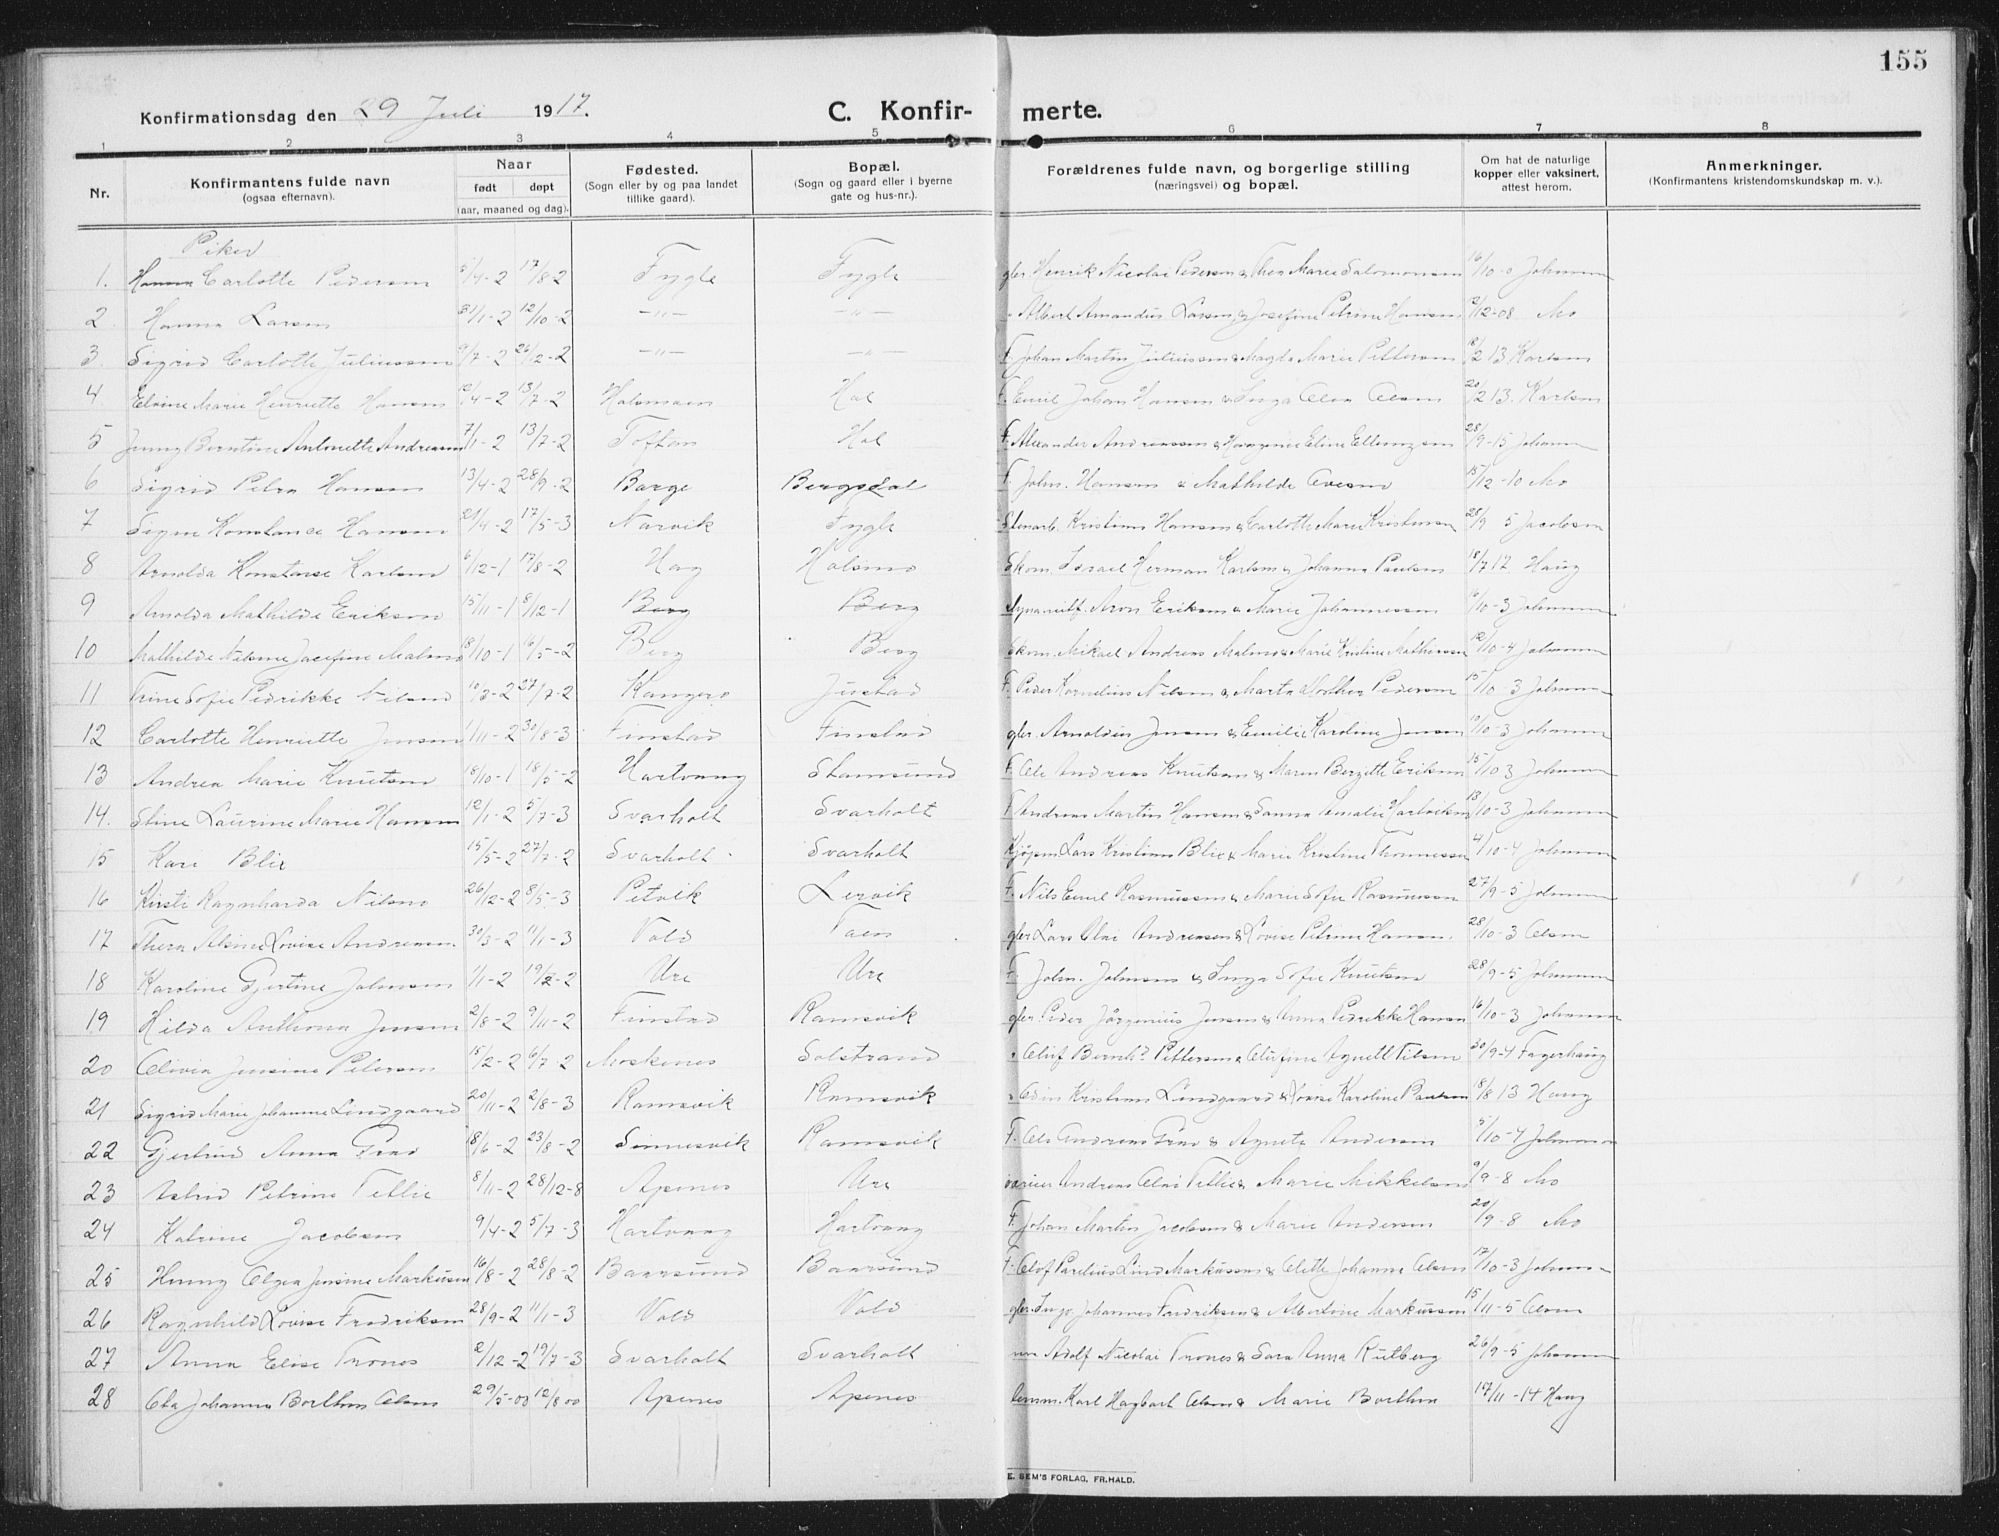 155
Konfirmationsdag den 29 Juli 1917. C. Konfir- merte.
1 2 3 4 5 6 7 8
Nr. Konfirmantens fulde navn (ogsaa efternavn). Naar født døpt (aar, maaned og dag). Fødested. (Sogn eller by og paa landet tillike gaard). Bopæl. (Sogn og gaard eller i byerne gate og hus-nr.). Forældrenes fulde navn, og borgerlige stilling (næringsvei) og bopæl. Om hat de naturlige kopper eller vaksinert, attest herom. Anmerkninger. (Konfirmantens kristendomskundskap m. v.).
Piker
1. Carlotte Pedersen 5/4-2 17/8-2 Fygle Fygle gbr Henrik Nicolai Pedersen & Thea Marie Salomonsen 16/10-0 Johansen
2. Hanna Larsen 31/1-2 12/10-2 -"- -"- " Albert Amandus Larsen & Josefine Petrine Hansen 2/12-08 Mo
3. Sigrid Carlotte Juliussen 9/7-2 26/2-2 -"- -"- F. Johan Martin Juliussen & Magda Marie Pettersen 18/2 13 Karlsen
4 Elvine Marie Henriette Hansen 12/4-2 13/7-2 Holsmoen Hol F. Emil Johan Hansen & Inga Olea Olsen 20/2 13. Karlsen
5 Jenny Berntine Antonette Andreassen 7/1-2 13/7-2 Toften Hol F. Alexander Andreassen & Eline Ellingsen 28/9-15 Johansen
6 Sigrid Petra Hansen 13/4-2 28/9-2 Borge Bergsdal F. John. Hansen & Mathilde 15/12-10 Mo
7 Signe Konstance Hansen 21/4-2 17/5-3 Narvik Fygle Stenarb. Kristian Hansen & Carlotte Marie Kristensen 28/9 5 Jacobsen
8 Arnolda Konstanse Karlsen 6/12-1 17/8-2 Hag Holsmo Skom. Israel Herman Karlsen & Johanna Paulsen 18/7 17 Haug
9 Arnolda Mathilde Eriksen 15/11-1 8/12-1 Berg Berg Aron Eriksen & Marie Johannessen 16/10-3 Johansen
10 Mathilde Nilsine Josefine Malmo 18/10-1 16/5-2 Berg Berg Skom. Mikael Andreas Malmo & Marie Kristine Mathissen 12/10-4 Johansen
11 Trine Sofie Pedrikke Nilsen 10/3-2 27/7-2 Kangerø Justad F. Peder Kornelius Nilsen & Marta Pedersen 15/10-3 Johansen
12 Carlotte Henriette Jensen 1/11-2 30/8-3 Finstad Finstad gbr. Arnoldus Jensen & Emilie Karoline Jensen 10/10-3 Johansen
13 Andrea Marie Knutsen 18/10-1 18/5-2 Hartvang Stamsund F. Ole Andreas Knutsen & Maren Bergitte Eriksen 15/10 3 Johansen
14. Stine Laurine Marie Hansen 12/1-2 5/7-3 Svarholt Svarholt F Andreas Martin Hansen & Sanna Amalie Hartviksen 13/10-3 Johansen
15 Kari Blix 15/5-2 27/7-2 Svarholt Svarholt Kjøpm. Lars Kristian Blix & Marie Kristine Thonnessen 4/10-4 Johansen
16 Kirsti Ragnharda Nilsen 26/12-2 8/5-3 Petvik Lervik F. Nils Emil Rasmussen & Marie Sofie Rasmussen 27/9-5 Johansen
17 Thera Alsine Lovise Andreassen 30/3-2 11/1-3 Vold Taen gbr Lars Olai Andreasen & Lovise Petrine Hansen. 28/10-3 Olsen
18 Karoline Gjertine Johnsen 1/1-2 19/2-2 Ure Ure F. John. Johnsen & Inga Sofie Knutsen 28/9-5 Johansen
19 Hilda Anthona Jensen 2/8-2 9/11-2 Finstad Ramsvik gbr. Peder Jørgenius Jensen & Anna Pedrikke Hansen 16/10-3 Johansen
20 Olivia Jensine Petersen 15/2-2 6/7-2 Moskenes Solstrand " Oluf Bernhd Pettersen & Olufine Agnett Tilsen 30/9-4 Fagerhaug
21 Sigrid Marie Johanne Lindgaard 20/11-2 2/8-3 Ramsvik Ramsvik " Odin Kristian Lindgaard & Lovise Karoline Paulsen 18/8 13 Haug
22 Gjertrud Anna Grav 18/6-2 23/8-2 Sennesvik Ramsvik F. Ole Andreas Grav & Agnete Andersen 5/10-4 Johansen
23 Astrid Petrine Tetlie 8/11-2 28/12-8 Apenes Ure Andreas Olai Tetlie & Marie Mikkelsen 9/9-8 Mo
24 Katrine Jacobsen 9/4-2 5/7-3 Hartvang Hartvang F. Johan Martin Jacobsen & Marie Andersen 20/9-8 Mo
25 Henny Olgea Jensine Markusen 16/8-2 28/8-2 Baarsund Baarsund F. Olof Parelius Lind Markussen & Olette Johanna Olsen 17/10-3 Johansen
26 Ragnhild Lovise Fredriksen 28/9-2 11/1-3 Vold Vold gbr. Ingv. Johannes Fredriksen & Albertine Markussen 15/11-5 Olsen
27 Anna Elise Trones 2/12-2 19/7-3 Svarholt Svarholt Adolf Nicolai Trones & Sara Anna Rutberg 26/9-5 Johansen
28 Johanna Borthen Olsen 29/5-00 12/8 00 Apenes Apenes Karl Hagbart Olsen & Marie Borthen 17/11-14 Haug
E. SEM'S FORLAG, FR.HALD.